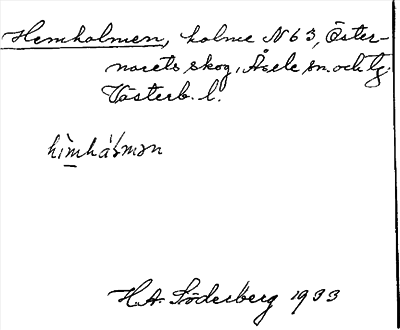 Hemholmen, holme N 63, Öster-
norets skog, Åsele sn. och tg.
Västerb. l.
H.A. Söderberg 1933